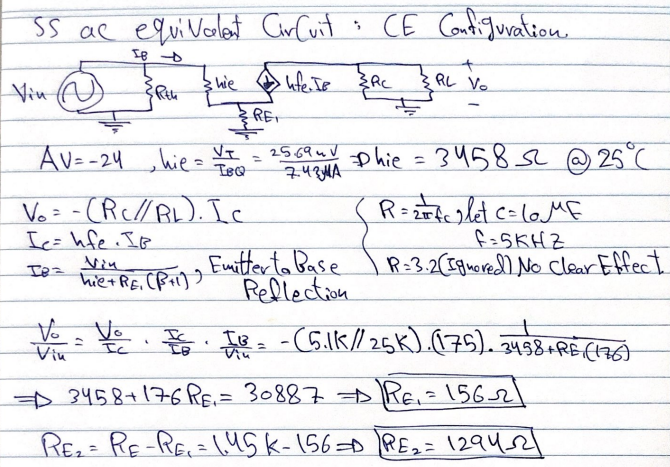 SS ac equivalent Circuit : CE Configuration
IB →
Vin Rth hie hfe.IB RC RL + Vo -
RE1
AV=-24 , hie = VT/IBQ = 25.69mV/7.43μA ⇒ hie = 3458 Ω @ 25°C
Vo = -(RC//RL). Ic
R = 1/2πfc , let C=10MF
Ic = hfe . IB
f=5KHZ
IB = Vin/hie+RE1(β+1) , Emitter to Base Reflection
R=3.2(Ignored) No Clear Effect
Vo/Vin = Vo/Ic . Ic/IB . IB/Vin = -(5.1K//25K).(175). 1/3458+RE1(176)
⇒ 3458+176RE1 = 30887 ⇒ RE1 = 156Ω
RE2 = RE-RE1 = 1.45K-156 ⇒ RE2 = 1294Ω